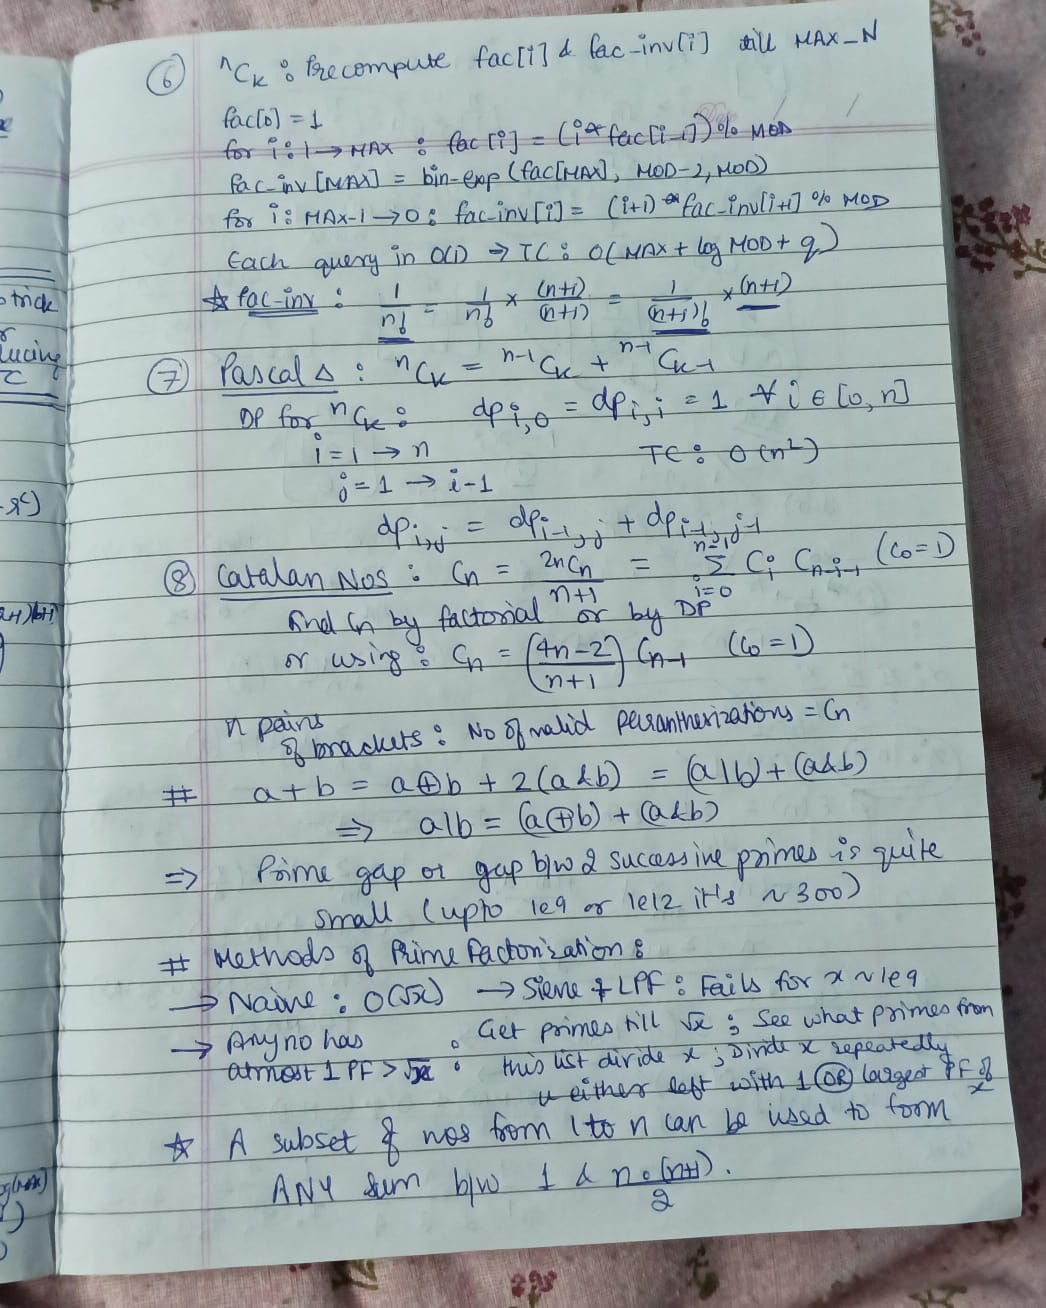 ⑥ ⁿCₖ : Precompute fac[i] & fac-inv[i] till MAX_N
fac[0] = 1
for i : 1 → MAX : fac[i] = (i * fac[i-1]) % MOD
fac-inv[MAX] = bin-exp(fac[MAX], MOD-2, MOD)
for i : MAX-1 → 0 : fac-inv[i] = (i+1) * fac-inv[i+1] % MOD
Each query in O(1) → TC : O(MAX + log MOD + q)
☆ fac-inv : 1/n! = 1/n! × (n+1)/(n+1) = 1/(n+1)! × (n+1)
⑦ Pascal Δ : ⁿCₖ = ⁿ⁻¹Cₖ + ⁿ⁻¹Cₖ₋₁
DP for ⁿCₖ : dp i,0 = dp i,i = 1 ∀ i ∈ [0, n]
i = 1 → n TC : O(n²)
j = 1 → i-1
dp i,j = dp i-1,j + dp i-1,j-1
⑧ Catalan Nos : Cₙ = 2nCn/(n+1) = Σ i=0 n-1 Cᵢ Cn-i-1 (C₀=1)
find Cn by factorial or by DP
or using : Cn = ((4n-2)/(n+1)) Cn-1 (C₀=1)
n pairs
of brackets : No of valid paranthesizations = Cn
# a+b = a⊕b + 2(a&b) = (a|b) + (a&b)
⇒ a|b = (a⊕b) + (a&b)
⇒ Prime gap or gap b/w 2 successive primes is quite
small (upto 1e9 or 1e12 it's ~300)
# Methods of Prime Factorization :
→ Naive : O(√x) → Sieve & LPF : Fails for x ~ 1e9
→ Any no has : Get primes till √x ; See what primes from
atmost 1 PF > √x : this list divide x ; Divide x repeatedly
u either left with 1 OR largest PF of x
☆ A subset of nos from 1 to n can be used to form
ANY sum b/w 1 & n·(n+1)/2.
trick
ucing
log(max)